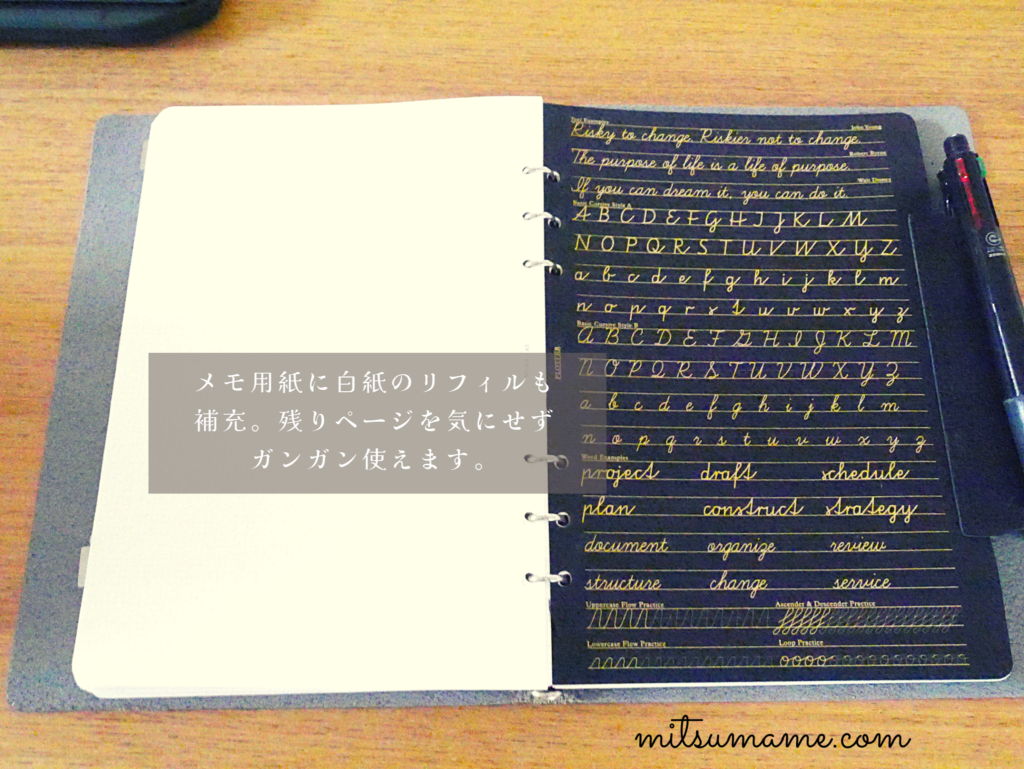 メモ用紙に白紙のリフィルも
補充。残りページを気にせず
ガンガン使えます。
Text Examples
John Young
Risky to change. Riskier not to change.
Robert Byrne
The purpose of life is a life of purpose.
Walt Disney
If you can dream it, you can do it.
Basic Cursive Style A
A B C D E F G H I J K L M
N O P Q R S T U V W X Y Z
a b c d e f g h i j k l m
n o p q r s t u v w x y z
Basic Cursive Style B
A B C D E F G H I J K L M
N O P Q R S T U V W X Y Z
a b c d e f g h i j k l m
n o p q r s t u v w x y z
Word Examples
project draft schedule
plan construct strategy
document organize review
structure change service
Uppercase Flow Practice Ascender & Descender Practice
Lowercase Flow Practice Loop Practice
PLOTTER
mitsumame.com